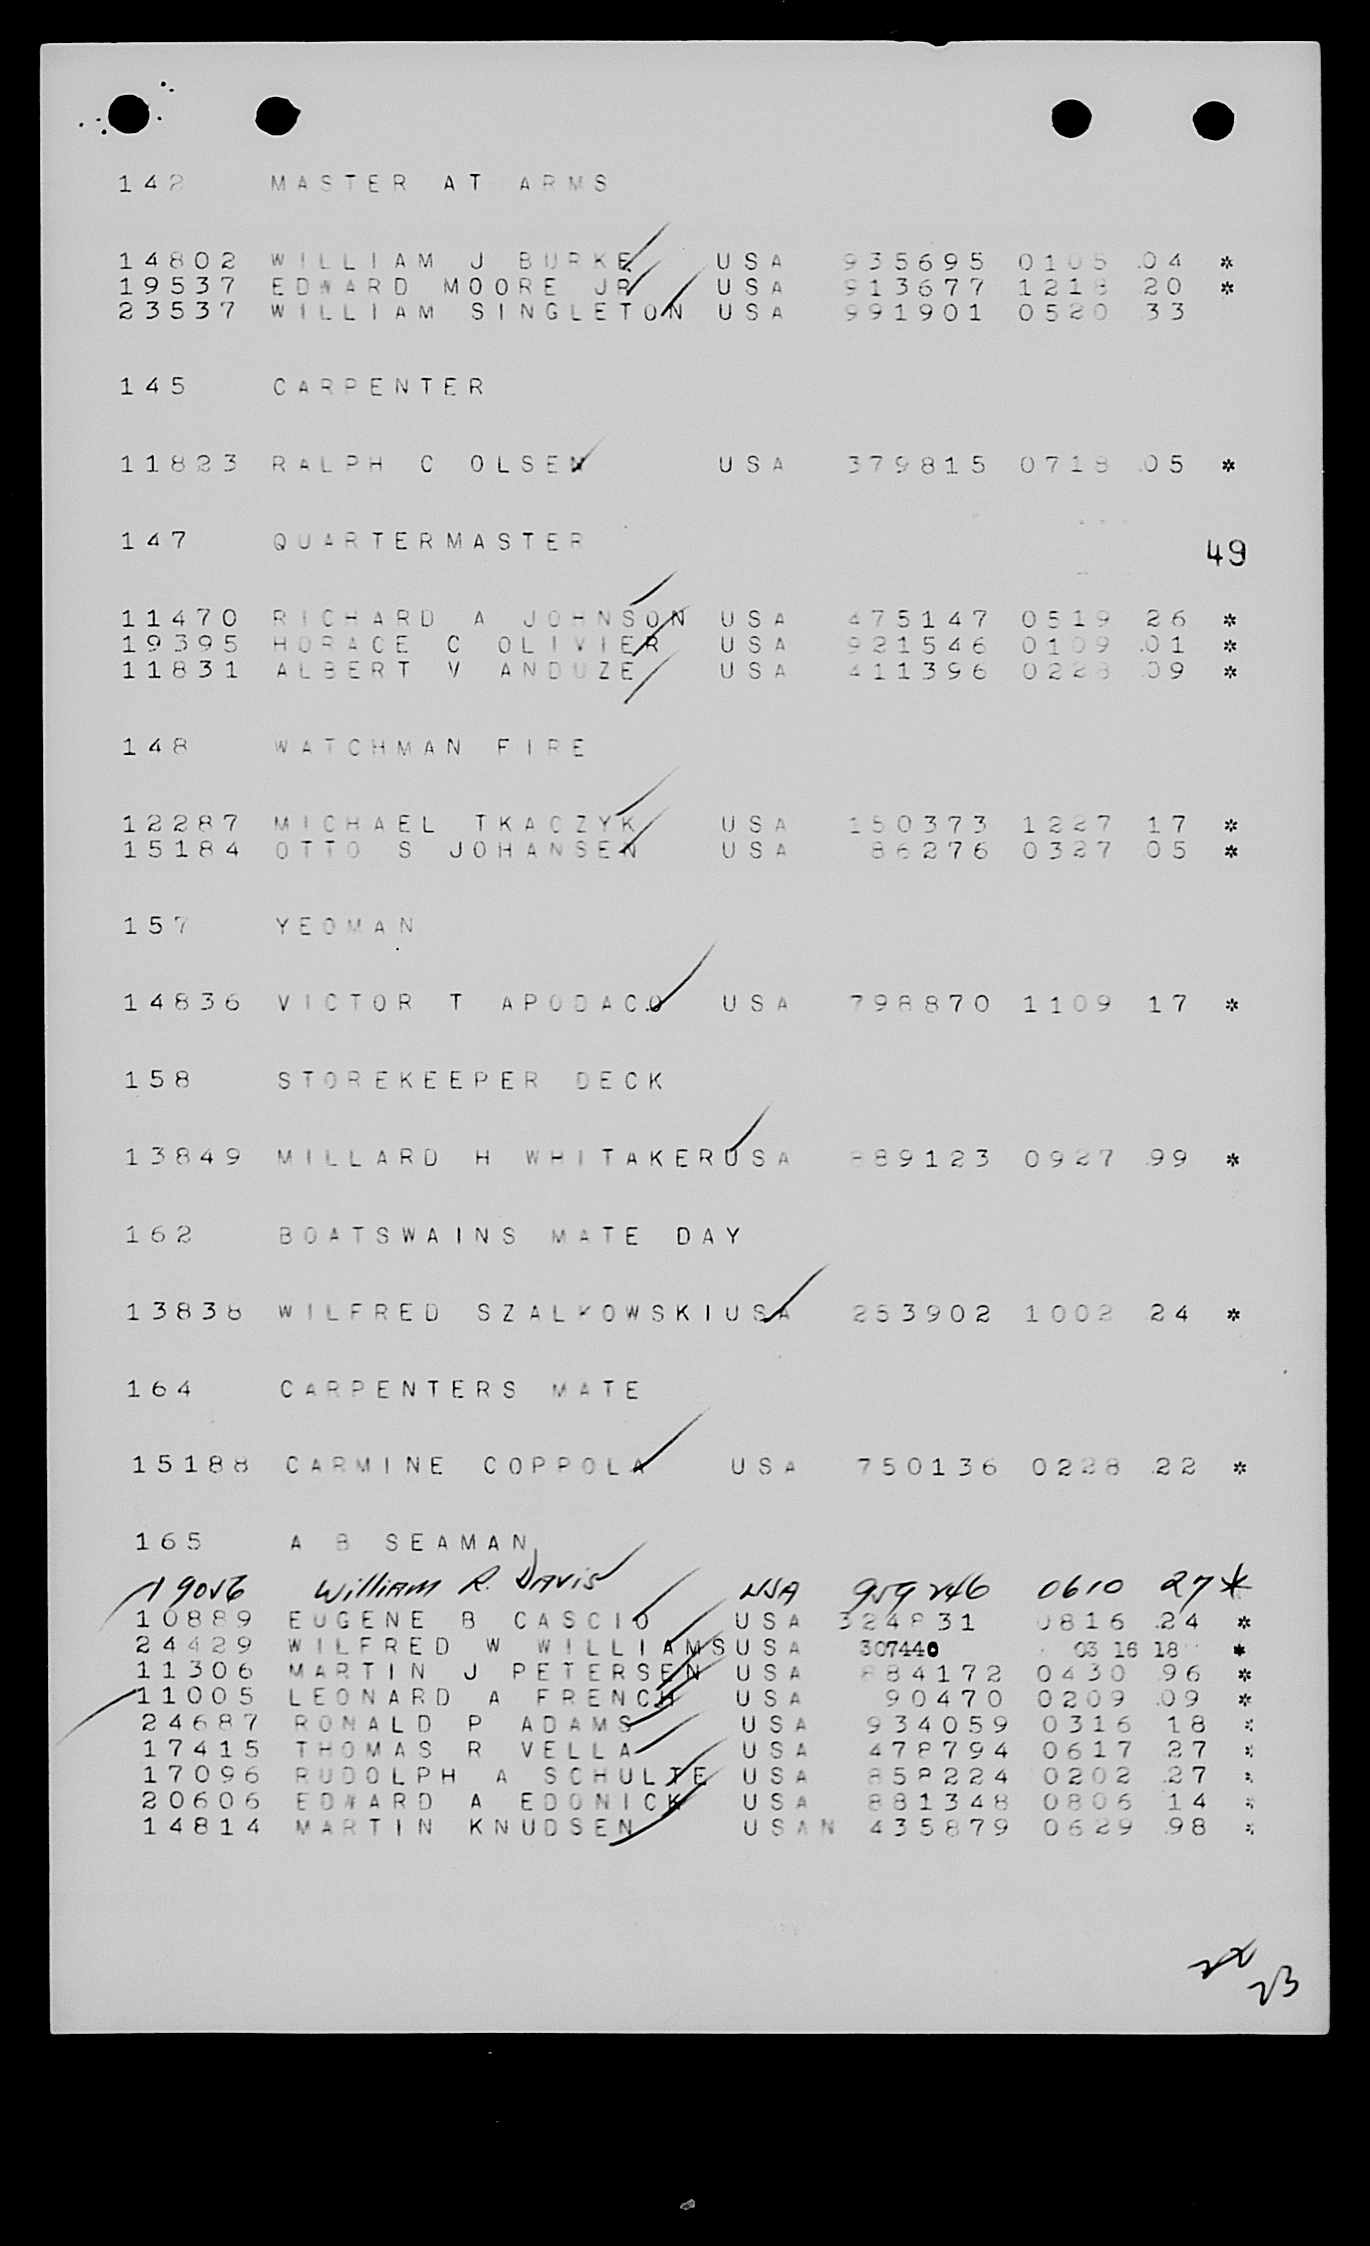 142 MASTER AT ARMS
14802 WILLIAM J BURKE USA 935695 0105 04 *
19537 EDWARD MOORE JR USA 913677 1218 20 *
23537 WILLIAM SINGLETON USA 991901 0520 33
145 CARPENTER
11823 RALPH C OLSEN USA 379815 0718 05 *
147 QUARTERMASTER
49
11470 RICHARD A JOHNSON USA 475147 0519 26 *
19395 HORACE C OLIVIER USA 921546 0109 01 *
11831 ALBERT V ANDUZE USA 411396 0228 09 *
148 WATCHMAN FIRE
12287 MICHAEL TKACZYK USA 150373 1227 17 *
15184 OTTO S JOHANSEN USA 86276 0327 05 *
157 YEOMAN
14836 VICTOR T APODACO USA 798870 1109 17 *
158 STOREKEEPER DECK
13849 MILLARD H WHITAKERUSA 889123 0927 99 *
162 BOATSWAINS MATE DAY
13838 WILFRED SZALKOWSKIUSA 253902 1002 24 *
164 CARPENTERS MATE
15188 CARMINE COPPOLA USA 750136 0228 22 *
165 A B SEAMAN
19056 William R. Davis USA 959246 0610 27 *
10889 EUGENE B CASCIO USA 324831 0816 24 *
24429 WILFRED W WILLIAMSUSA 307440 03 16 18 *
11306 MARTIN J PETERSEN USA 884172 0430 96 *
11005 LEONARD A FRENCH USA 90470 0209 09 *
24687 RONALD P ADAMS USA 934059 0316 18 *
17415 THOMAS R VELLA USA 478794 0617 27 *
17096 RUDOLPH A SCHULTE USA 858224 0202 27 *
20606 EDWARD A EDONICK USA 881348 0806 14 *
14814 MARTIN KNUDSEN USAN 435879 0629 98 *
23